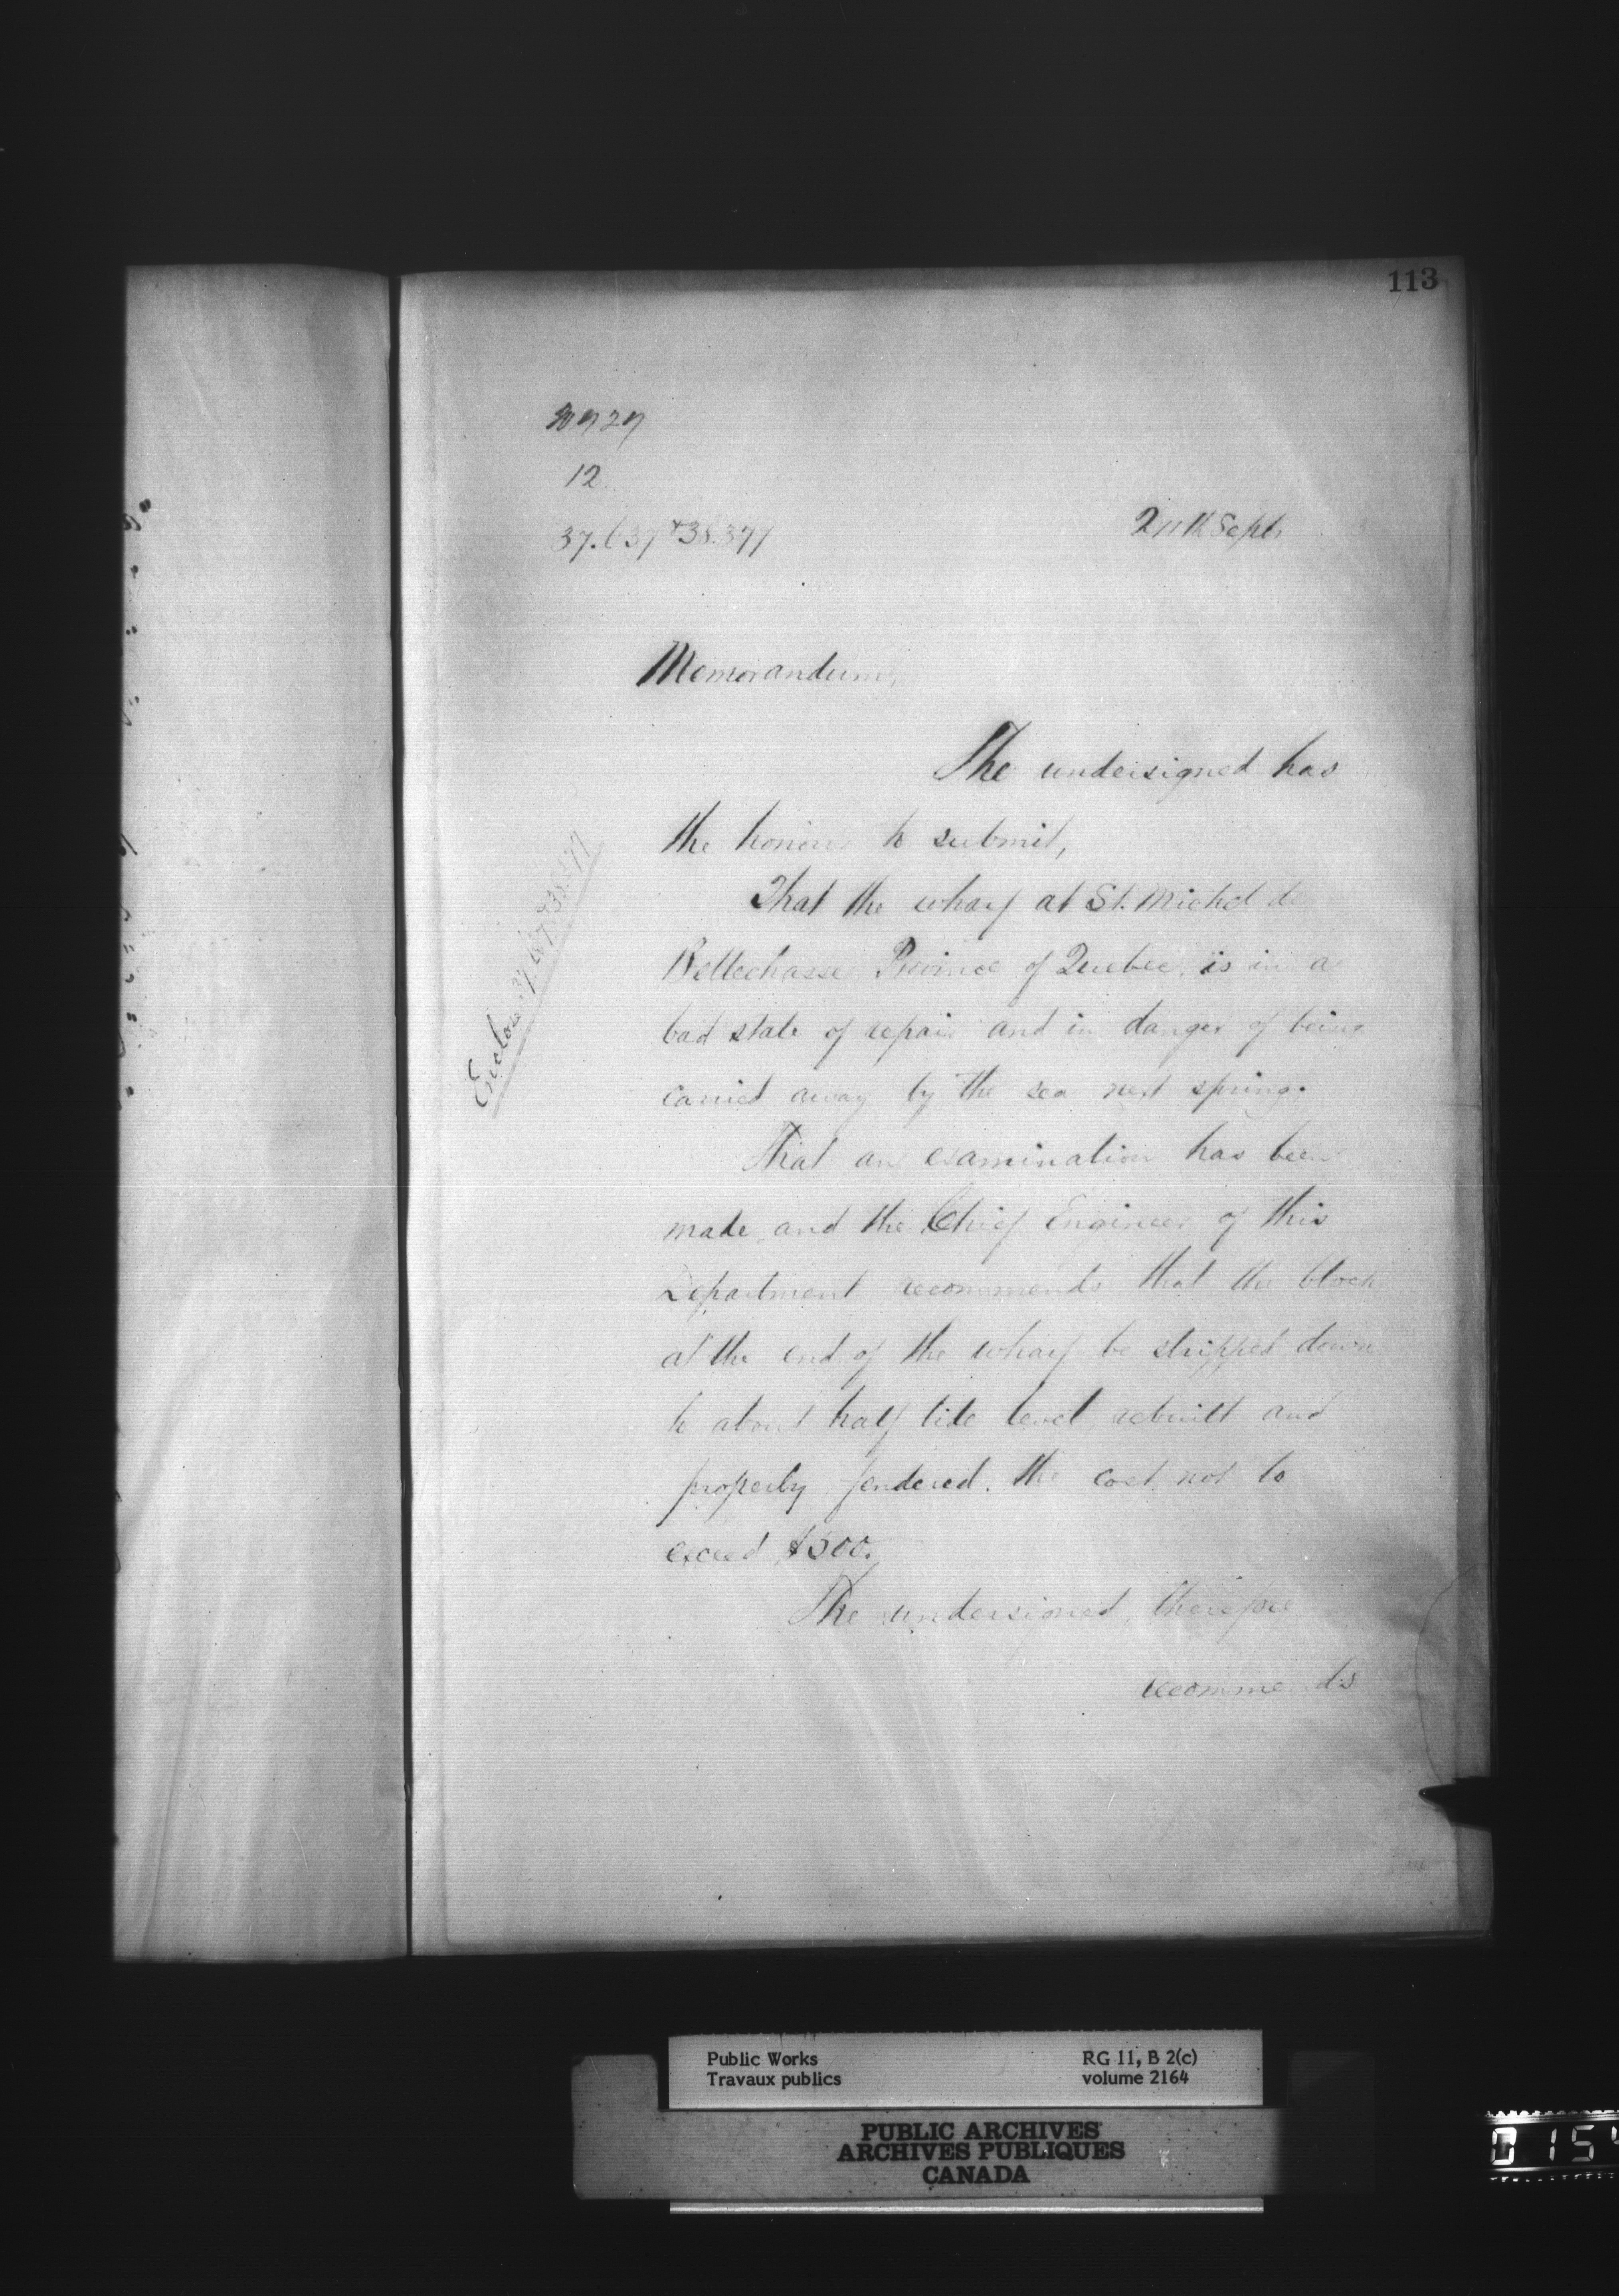 113
12
Sept.
Memorandum,
The undersigned has
the honor to submit,
That the wharf at St. Michel de
Bellechasse Province of Quebec, is in a
bad state of repair and in danger of being
carried away by the sea next spring.
That an examination has been
made, and the Chief Engineer of this
Department recommends that the block
at the end of the wharf be stripped down
to about half tide level, rebuilt and
properly fendered, the cost not to
exceed $500.
The undersigned, therefore
recommends
Enclose
Public Works
Travaux publics
RG 11, B 2(c)
volume 2164
PUBLIC ARCHIVES
ARCHIVES PUBLIQUES
CANADA